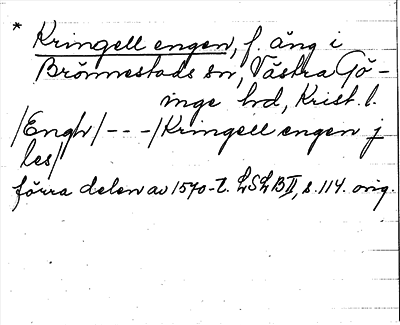 * Kringell engen, f. äng i
Brönnestads sn, Västra Gö-
inge hd, Krist. l.
/Engh/ - - -/Kringell engen j
les/
förra delen av 1570-t. LSLB II, s. 114. orig.